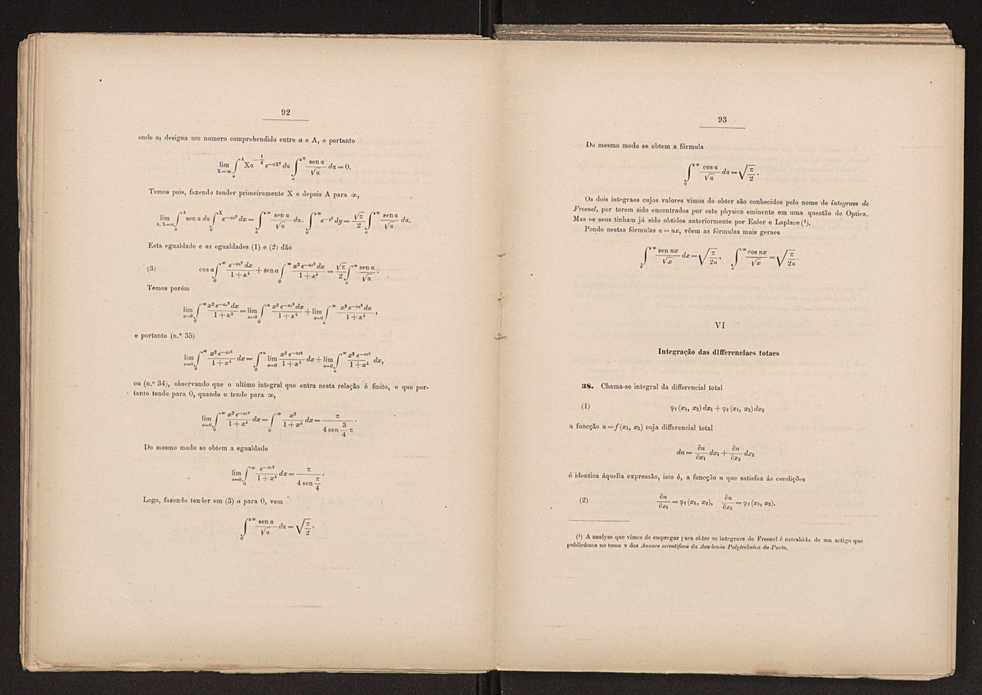 92
onde a₁ designa um numero comprehendido entre a e A, e portanto
lim ∫ Xa e du ∫ sen a / √a da = 0.
Temos pois, fazendo tender primeiramente X e depois A para ∞,
lim ∫ sen a da ∫ e dx = ∫ sen a / √a da . ∫ e dy = √π / 2 ∫ sen a / √a da,
Esta egualdade e as egualdades (1) e (2) dão
(3) cos a ∫ e dx / 1 + x⁴ + sen a ∫ x² e dx / 1 + x⁴ = √π / 2 ∫ sen a / √a .
Temos porém
lim ∫ x² e dx / 1 + x⁴ = lim ∫ x² e dx / 1 + x⁴ + lim ∫ x² e dx / 1 + x⁴ ,
e portanto (n.º 35)
lim ∫ x² e / 1 + x⁴ dx = ∫ lim x² e / 1 + x⁴ dx + lim ∫ x² e / 1 + x⁴ dx,
ou (n.º 34), observando que o ultimo integral que entra nesta relação é finito, e que por-
tanto tende para 0, quando tende para ∞,
lim ∫ x² e / 1 + x⁴ dx = ∫ x² / 1 + x⁴ dx = π / 4 sen 3/4 π .
Do mesmo modo se obtem a egualdade
lim ∫ e / 1 + x⁴ dx = π / 4 sen π/4 .
Logo, fazendo tender em (3) a para 0, vem
∫ sen a / √a da = √ π/2 .
93
Do mesmo modo se obtem a fórmula
∫ cos a / √a da = √ π/2 .
Os dois integraes cujos valores vimos de obter são conhecidos pelo nome de integraes de
Fresnel, por terem sido encontrados por este physico eminente em uma questão de Optica.
Mas os seus tinham já sido obtidos anteriormente por Euler e Laplace (¹).
Pondo nestas fórmulas a = nx, vêem as fórmulas mais geraes
∫ sen nx / √x dx = √ π/2n , ∫ cos nx / √x = √ π/2n .
VI
Integração das differenciaes totaes
38. Chama-se integral da differencial total
(1) φ₁ (x₁, x₂) dx₁ + φ₂ (x₁, x₂) dx₂
a funcção u = f (x₁, x₂) cuja differencial total
du = ∂u/∂x₁ dx₁ + ∂u/∂x₂ dx₂
é identica áquella expressão, isto é, a funcção u que satisfaz ás condições
(2) ∂u/∂x₁ = φ₁ (x₁, x₂), ∂u/∂x₂ = φ₂ (x₁, x₂).
(¹) A analyse que vimos de empregar para obter os integraes de Fresnel é extrahida de um artigo que
publicámos no tomo v dos Annaes scientificos da Academia Polytechnica do Porto.